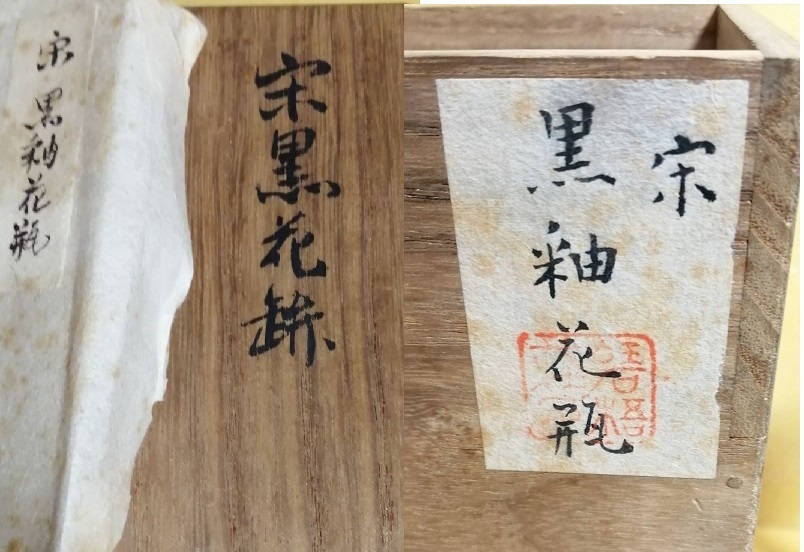 宋 黒釉花瓶
宋黒花缾
宋
黒釉花瓶